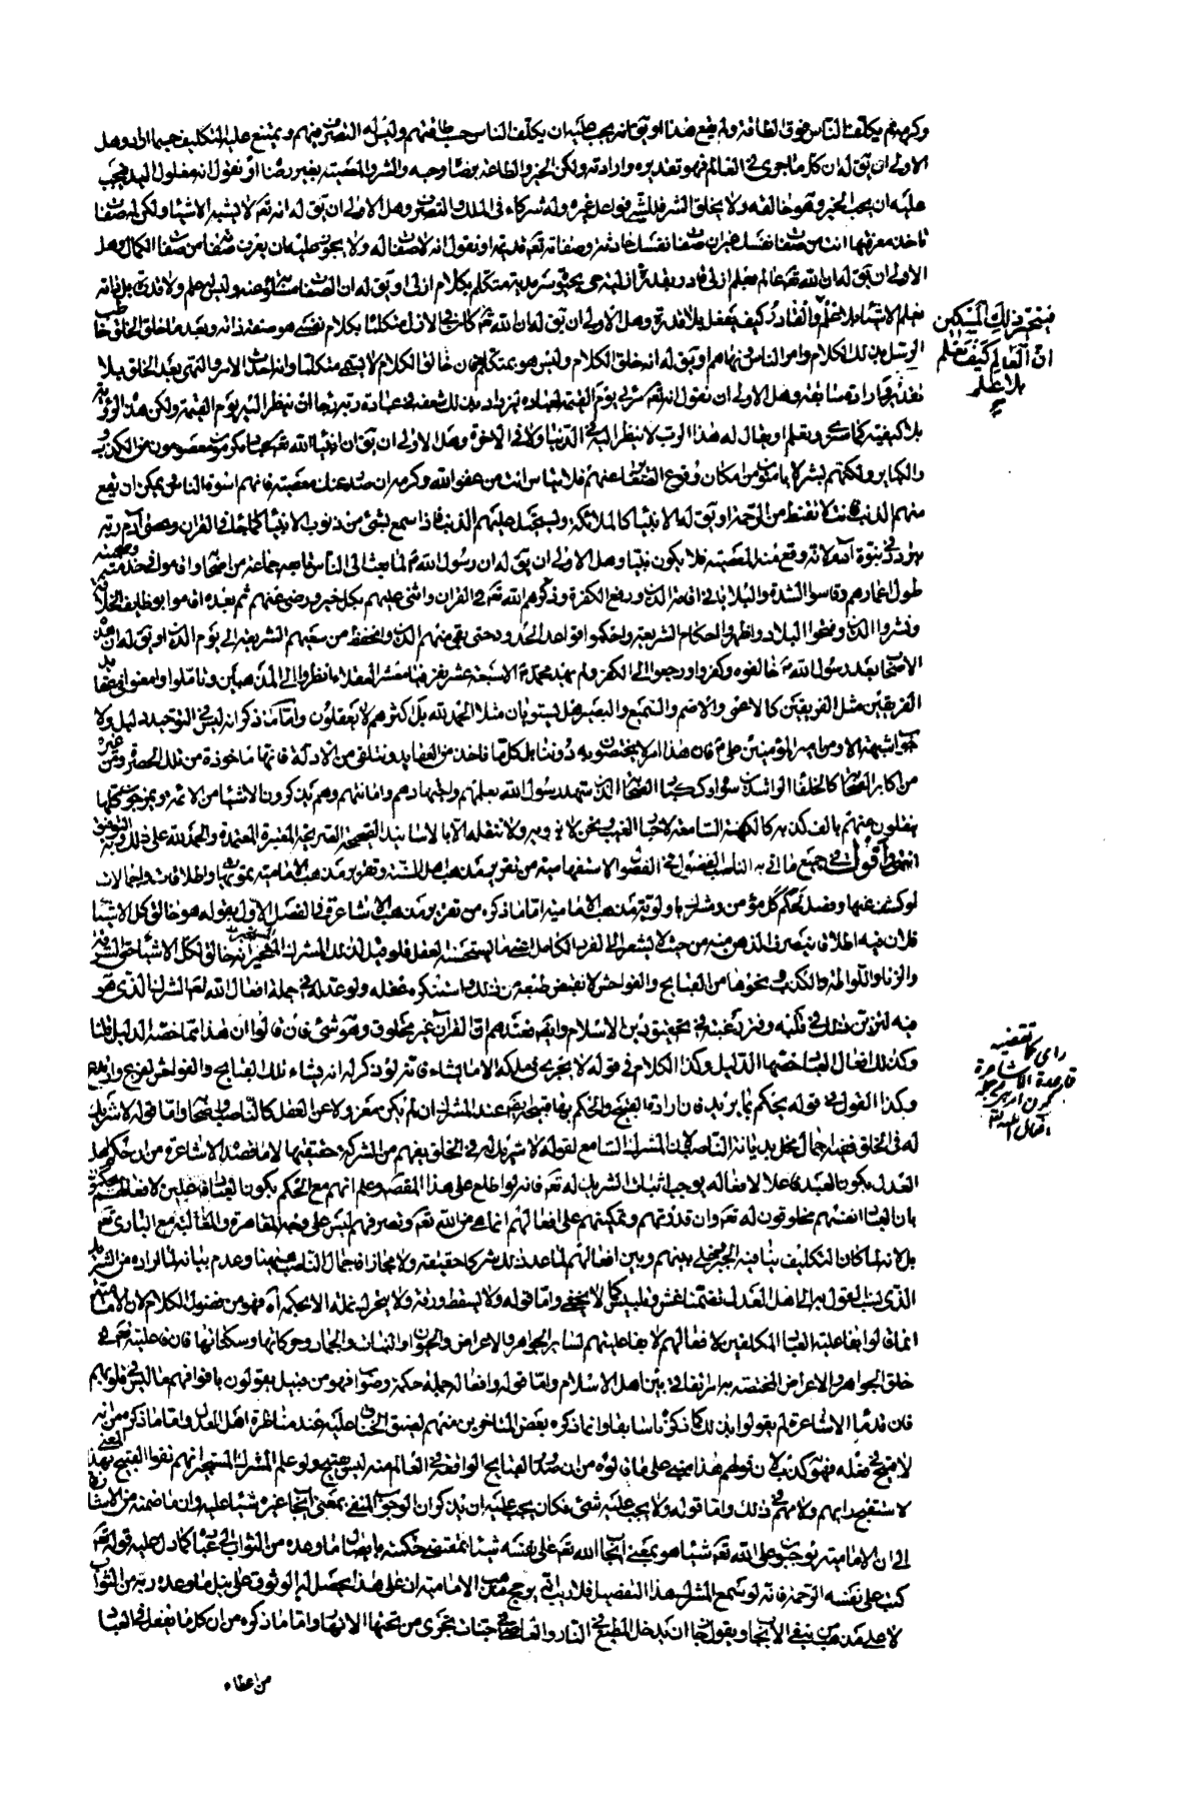 وكرمه لم يكلف الناس فوق الطاقة ولم يقع هذا او يق انه يجب عليه ان يكلف الناس حسب طاقتهم وليس له التصرف فيهم ويمتنع عليه التكليف حيثما اراد وهل
الاولى ان يق له ان كل ما جرى في العالم فهو تقديره وارادته ولكن الخير والطاعة برضاه وحبه والشر والمعصية بغير رضاه او نقول انه مغلول اليد فيجب
عليه ان يحب الخير وهو خالقه ولا يخلق الشر فللشر فواعل غيره وله شركاء في الملك والتصرف وهل الاولى ان يق له انه تعه لا يشبه الاشياء ولكن له صفات
تاخذ معرفتها انت من صفات نفسك غير ان صفات نفسك حادثة وصفاته تعه قديمة او نقول انه لا صفات له ولا يجوز عليه ان يعرف صفاته من صفات الكمال وهل
الاولى ان يق له ان الله تعه عالم بعلم ازلي قادر بقدرة ازلية حي بحيوة سرمدية متكلم بكلام ازلي او يق له ان الصفات مسلوبة عنه وليس له علم ولا قدرة بل ذاته
تعلم الاشياء بلا علم والقادر كيف يفعل بلا قدرة وهل الاولى ان يق له ان الله تعه كان في الازل متكلما بكلام نفسي هو صفة ذاته وبعد ما خلق الخلق خاطب
الرسل بذلك الكلام وامر الناس ونهاهم او يق له انه خلق الكلام وليس هو بمتكلم فان خالق الكلام لا يسمى متكلما وانه احدث الامر والنهي بعد الخلق بلا
تقدير وارادة سابقة وهل الاولى ان نقول انه تعه مرئي يوم القيمة لعباده ليزداد بذلك شعفه في عبادة ربه رجاء ان ينظر اليه يوم القيمة ولكن هذه الرؤية
بلا كيفية كما سترى وتعلم او يقال له هذا الرب لا ينظر اليه في الدنيا ولا في الاخرة وهل الاولى ان يق ان انبياء الله تعه عباد مكرمون معصومون من الكذب
والكبائر ولكنهم بشر لا يامنون من امكان وقوع الصغائر عنهم فلا تياس انت من عفو الله وكرمه ان صدر عنك معصية فانهم اسوة الناس يمكن ان يقع
منهم الذنب فانت لا تقنط من الرحمة او يق له الانبياء كالملائكة ويستحيل عليهم الذنب فاذا سمع بشئ من ذنوب الانبياء كما جاء في القران وعصى آدم ربه
يتردد في نبوة آدم لانه وقع منه المعصية فلا يكون نبيا وهل الاولى ان يق له ان رسول الله لما بعث الى الناس تابعه جماعة من اصحابه واقاموا في خدمته وصحبته
طول اعمارهم وقاسوا الشدة والبلاء في اقامة الدين ورفع الكفرة وذكرهم الله تعه في القران واثنى عليهم بكل خير ورضي عنهم ثم بعده اقاموا بوظايف الخلافة
ونشروا الدين وفتحوا البلاد واظهروا احكام الشريعة واحكموا قواعد الحدود حتى بقى منهم الدين وانحفظ من سعيهم الشريعة الى يوم الدين او يق له ان هذه
الاصحاب بعد رسول الله خالفوه وكفروا ورجعوا الى الكفر ولم يهتد محمد الا سبعة عشر نفر فيا معشر العقلاء انظروا الى المذهبين وتاملوا وامعنوا في عقايد
الفريقين مثل الفريقين كالاعمى والاصم والسميع والبصير هل يستويان مثلا الحمد لله بل اكثرهم لا يعقلون واما ما ذكر انه ليس في التوحيد دليل ولا
جواب شبهة الا ومن امير المؤمنين علي فان هذا امر لا يختصون به دوننا بل كلها ناخذ من العقايد ونتلقى من الادلة فانها ماخوذة من تلك الحضرة ومن غيره
من اكابر الصحابة كالخلفاء الراشدين وسواهم كبار الصحابة الذين شهد رسول الله بعلمهم واجتهادهم وامانتهم وهم يذكرون الاشياء من الائمة ويمزجون كلها
ينقلون عنهم بالف كذبة كالكهنة السامعة لاخبار الغيب ونحن لا نرويه ولا ننقله الا بالاسانيد الصحيحة الصريحة المعتبرة المعتمدة والحمد لله على ذلك وبه التوفيق
انتهى واقول في جميع ما اتى به الناصب الفضول في الفصول الاستفهامية من تقرير مذهب اهل السنة وتقرير مذهب الامامية تمويهات واطلاقات واجمالات
لو كشف عنها وفصل لحكم كل مؤمن ومشرك باولوية مذهب الامامية اما ما ذكره من تقرير مذهب الاشاعرة في الفصل الاول بقوله هو خالق كل الاشياء
فلان فيه اطلاقا ينصرف الذهن منه من حيث لا يشعر الى الفرد الكامل اعني ما يستحسنه العقل فلو قيل لذلك المشرك المتحير انه خالق لكل الاشياء حتى السرقة
والزنا واللواطة والكذب ونحوها من القبايح والفواحش لانقبض طبعه من ذلك واستنكره عقله ولو عد له في جملة افعال الله تعه الشرك الذي هو
فيه لتزيد ذلك في نكبه وفترة رغبته في تحقيق دين الاسلام وايضا عندهم ان القرآن غير مخلوق وهو شئ فان قالوا ان هذا مما خصه الدليل قلنا
وكذلك افعال العباد خصها الدليل وكذا الكلام في قوله لا يجري في ملكه الا ما يشاء فانه لو ذكر له انه يشاء تلك القبايح والفواحش لفزع وارتدع
وكذا القول في قوله يحكم بما يريد فان ارادة القبيح والحكم بها قبيح ايضا عند المشرك ان لم يكن معزولا عن العقل كالناصب واصحابه واما قوله لا شريك
له في الخلق ففيه اجمال مخل بديانة الناصب لان المشرك السامع لقوله لا شريك له في الخلق يفهم من الشركة حقيقتها لا ما قصده الاشاعرة من ان حكم اهل
العدل بكون العبد فاعلا لافعاله يوجب اثبات الشريك له تعه فانه لو اطلع على هذا المقصد وعلم انهم مع الحكم بكون العباد فاعلين لافعالهم يحكمون
بان العباد انفسهم مخلوقون له تعه وان قدرتهم وتمكينهم على افعالهم انما هي من الله تعه وتصرفهم ليس على وجه المقاهرة والمغالبة مع الباري تعه
بل لانه لما كان التكليف ينافيه الجبر خلى بينهم وبين افعالهم لما عد ذلك شركا حقيقة ولا مجازا فاجمال الناصب هيهنا وعدم بيانه لما اراده من الشريك
الذي نسب القول به الى اهل العدل يتضمن غشا وتلبيسا كما لا يخفى واما قوله ولا يسقط ورقة ولا يتحرك نملة الا بحكمه آه فهو من فضول الكلام لان الامامية
انما قالوا بفاعلية العباد المكلفين لافعالهم لا بفاعليتهم لساير الجواهر والاعراض والحيوان والنبات والجماد وحركاتها وسكناتها فان فاعليته تعه في
خلق الجواهر والاعراض المختصة به امر اتفاقي بين اهل الاسلام واما قوله وافعاله جملة حكمة وصواب فهو من قبيل يقولون بافواههم ما ليس في قلوبهم
فان قدماء الاشاعرة لم يقولوا بذلك كما ذكرناه سابقا وانما ذكره بعض المتاخرين منهم لضيق الخناق عليه عند مناظرة اهل العدل واما ما ذكره من انه
لا قبيح في فعله فهو كذب لان قولهم هذا مبني على ما قالوه من ان صدور القبايح الواقعة في العالم منه ليس بقبيح ولو علم المشرك المستجير انهم نفوا القبيح بهذا المعنى
لاستقبح رايهم ولامهم في ذلك واما قوله ولا يجب عليه شئ فكان يجب عليه ان يذكر ان الوجوب المنفي بمعنى ايجاب غيره شيئا عليه وان ما ضمنه من الاشارة
الى ان الامامية يوجبون على الله تعه شيئا هو بمعنى ايجاب الله تعه على نفسه شيئا بمقتضى حكمته بايصال ما وعده من الثواب الى عباده كما دل عليه قوله تعه
كتب على نفسه الرحمة فانه لو سمع المشرك هذا التفصيل فلا ريب انه يرجح مذهب الامامية ان على هذا يحصل له الوثوق على نيل ما وعده ربه من الثواب
لا على مذهب من ينفي الايجاب ويقول بجواز ان يدخل المطيع في النار والعاصي في جنات تجري من تحتها الانهار واما ما ذكره من ان كل ما يفعل في العباد
من اعطاء
فيتحير ذلك المسكين
ان العالم كيف يعلم
بلا علم
راى كما تقتضيه
قاعدة الاشاعرة